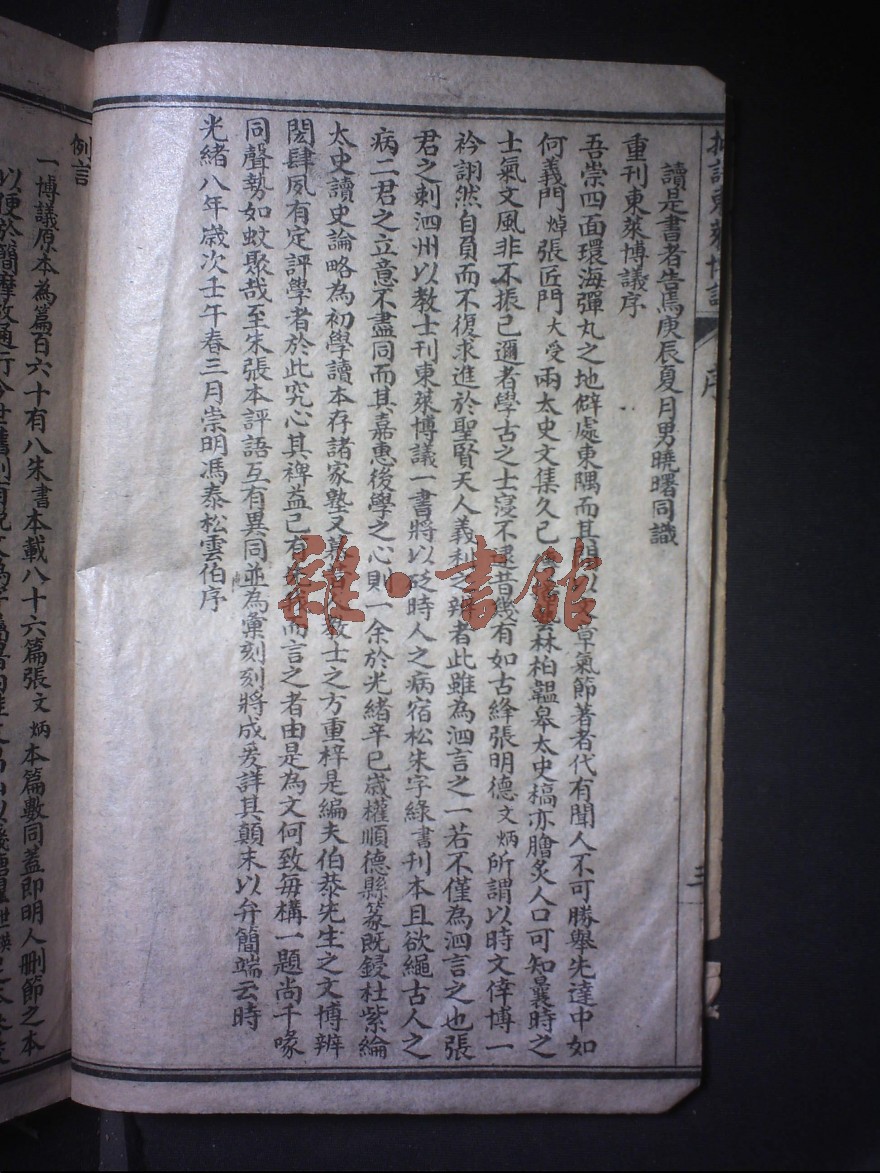 讀是書者告焉庚辰夏月男曉曙同識
重刊東萊博議序
吾崇四面環海彈丸之地僻處東隅而其間以文章氣節著者代有聞人不可勝舉先達中如
何義門焯張匠門大受兩太史文集久已林柏韞皋太史稿亦膾炙人口可知曩時之
士氣文風非不振已邇者學古之士寖不逮昔幾有如古絳張明德文炳所謂以時文倖博一
衿詡然自負而不復求進於聖賢天人義利之辨者此雖為泗言之一若不僅為泗言之也張
君之刺泗州以教士刊東萊博議一書將以砭時人之病宿松朱字綠書刊本且欲繩古人之
病二君之立意不盡同而其嘉惠後學之心則一余於光緒辛巳歲權順德縣篆既鋟杜紫綸
太史讀史論略為初學讀本存諸家塾又教士之方重梓是編夫伯恭先生之文博辨
閎肆夙有定評學者於此究心其裨益已有而言之者由是為文何致每構一題尚千喙
同聲勢如蚊聚哉至朱張本評語互有異同並為彙刻刻將成爰詳其顛末以弁簡端云時
光緒八年歲次壬午春三月崇明馮泰松雲伯序
東萊博議
序
三
例言
一博議原本為篇百六十有八朱書本載八十六篇張文炳本篇數同蓋即明人刪節之本
以便於簡摩故通行今世舊刻
雜·書館